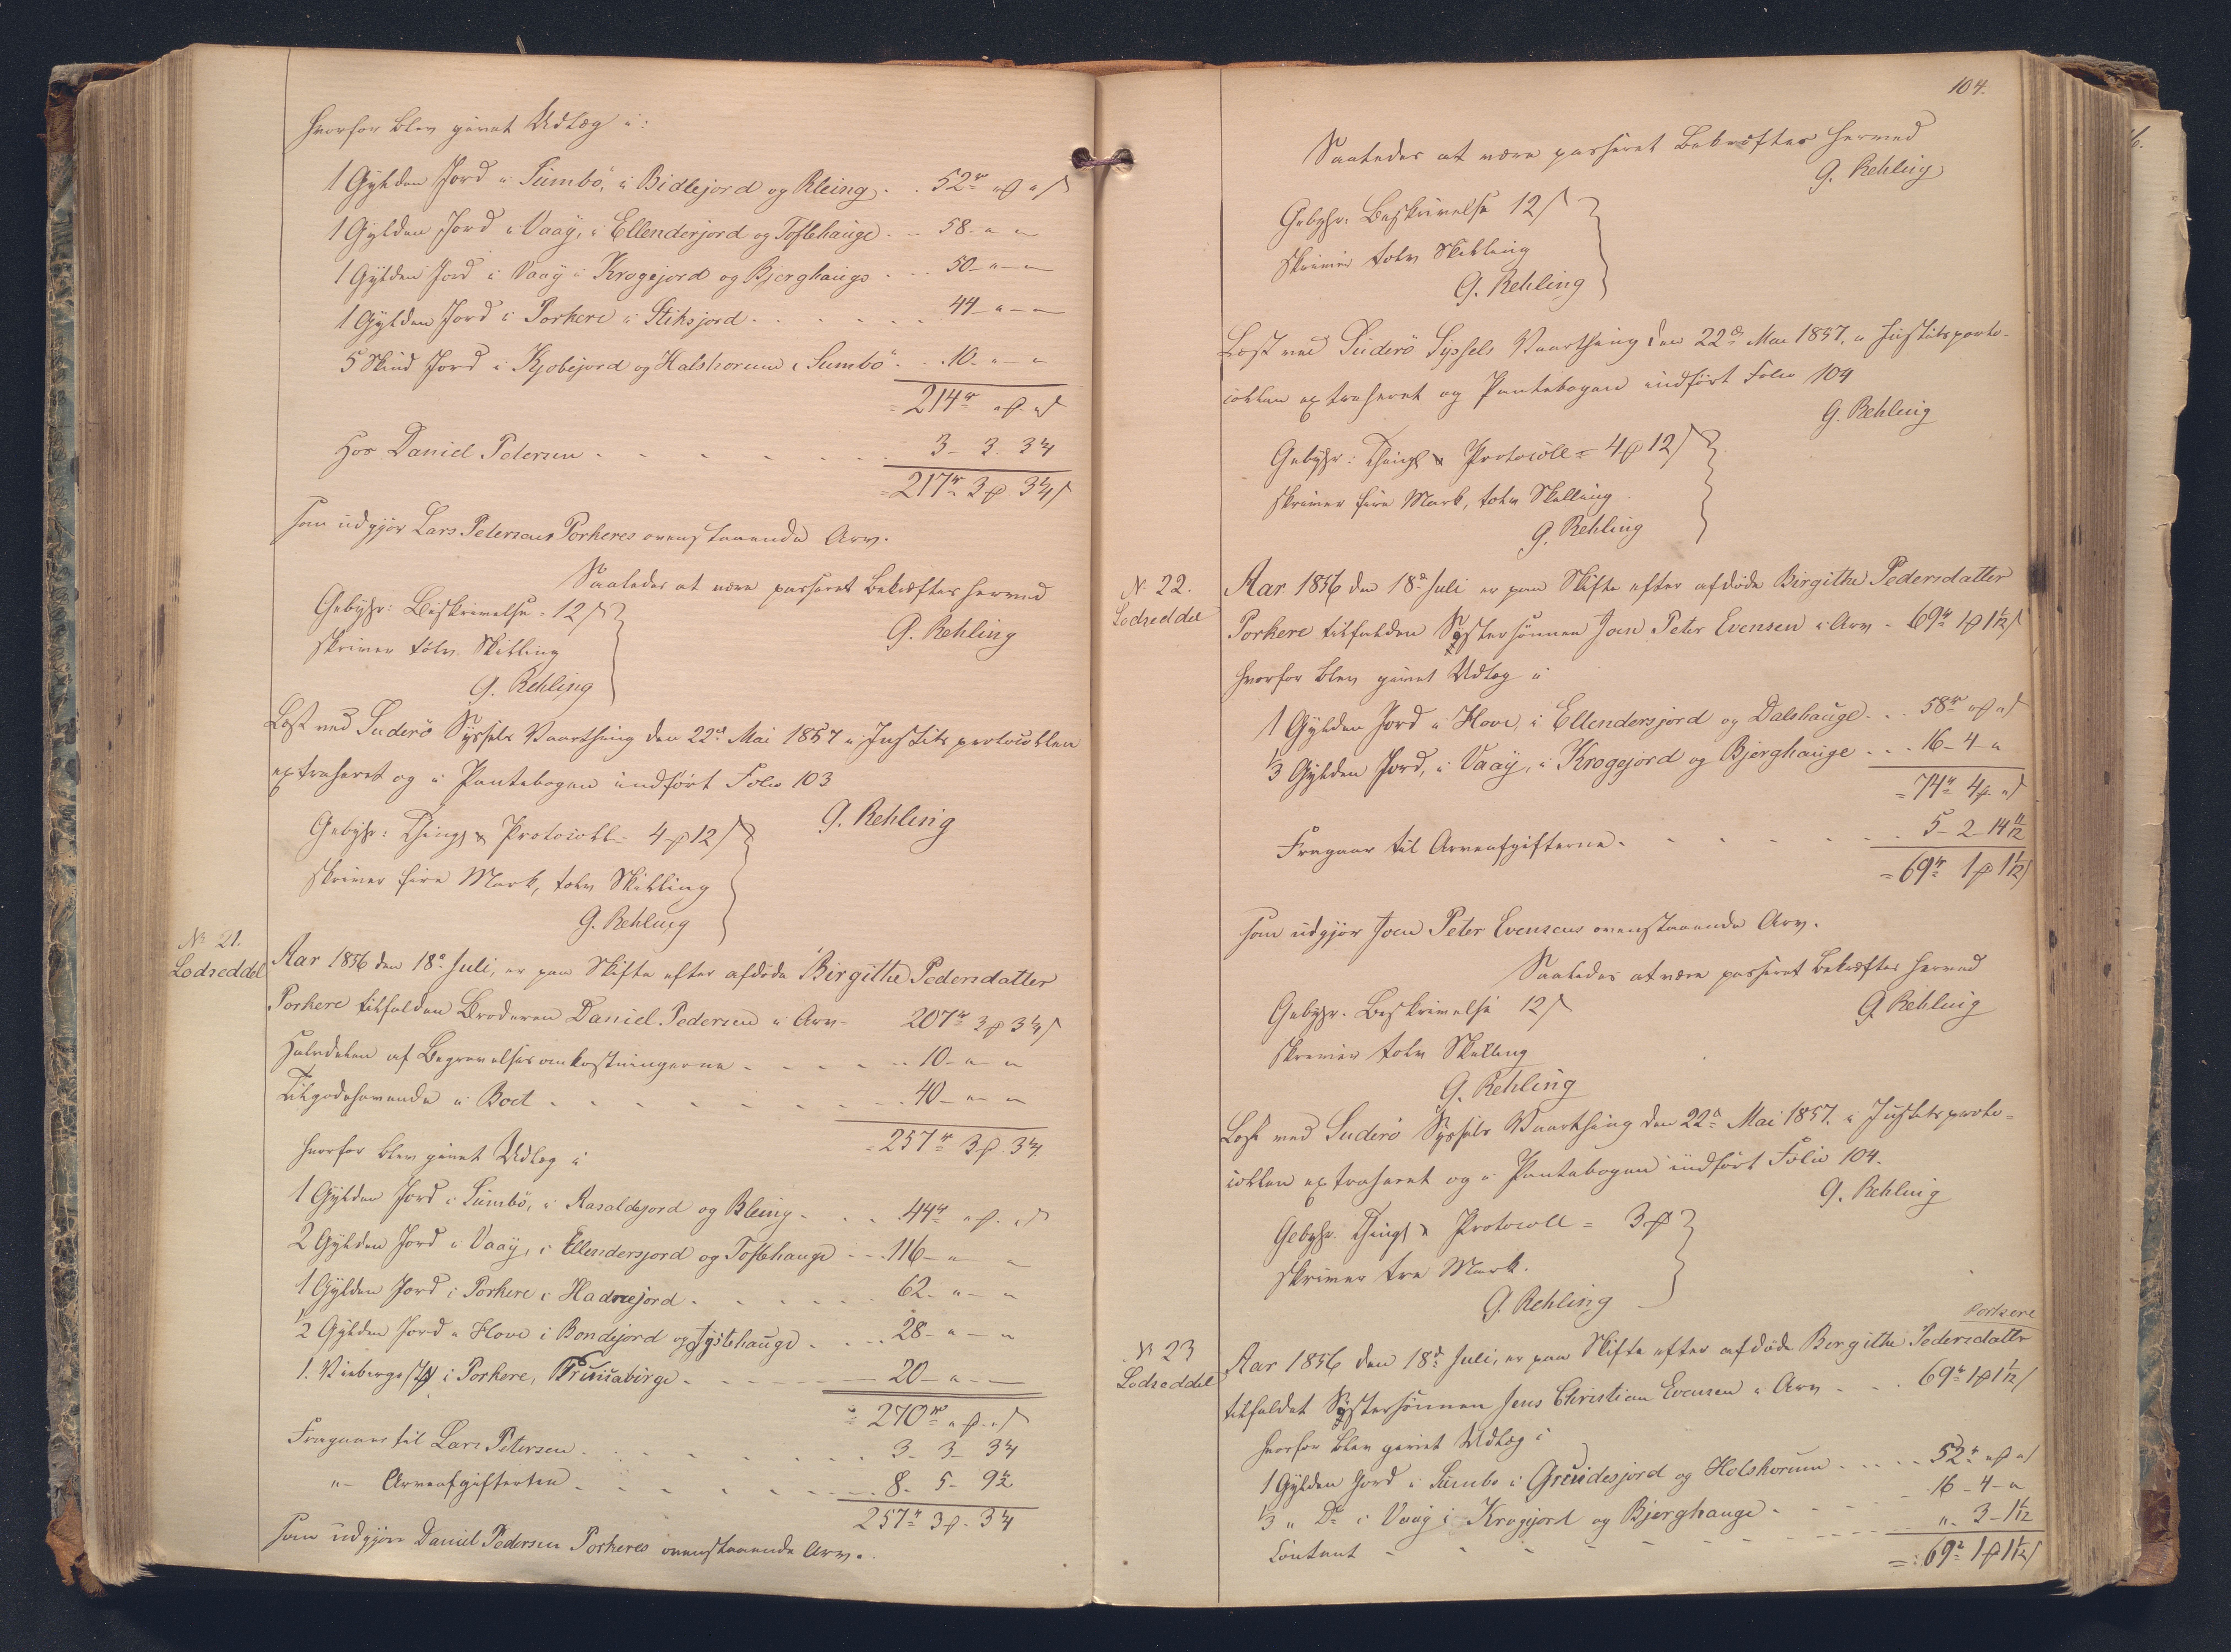 hvorfor blev givet Udlæg i:
1 Gylden Jord i Sumbö, i Bidlejord og Kleing . . 52rd " ß
1 Gylden Jord i Vaag, i Ellendersjord og Toftehauge . . 58 - " "
1 Gylden Jord i Vaag i Krogejord og Bjerghauge . . 50 - " - "
1 Gylden Jord i Porkere i Stiksjord . . . . 44 - " - "
5 Skind Jord i Kjobejord og Halshorum i Sumbö . . 10 - " - "
= 214rd " ß
Hos Daniel Petersen . . . . . 3 - 3. 3¼
= 217rd 3 3¼ ß
som udgjør Lars Petersens Porkeres ovenstaaende Arv.
Saaledes at være passeret bekræftes herved
G. Rehling
Gebyhr: Beskrivelse = 12 ß
skriver tolv Skilling
G. Rehling
Læst ved Suderö Syssels Vaarthing den 22d Mai 1857 i Justitsprotocollen
extraheret og i Pantebogen indført Folio 103
G. Rehling
Gebyhr: Thingl & Protocoll = 4 12 ß
skriver fire Mark, tolv Skilling
G. Rehling
No 21.
Lodseddel
Aar 1856 den 18d Juli, er paa Skifte efter afdöde Birgithe Pedersdatter
Porkere tilfalden Broderen Daniel Pedersen i Arv - 207rd 3 3¼ ß
Halvdelen af Begravelsesomkostningerne . . . . 10 - " "
Tilgodehavende i Boet . . . . . 40 - " - "
= 257rd 3 3¼
hvorfor blev givet Udlæg i
1 Gylden Jord i Sumbö, i Rasaldejord og Bleing . . . 44rd " ß
2 Gylden Jord i Vaag, i Ellendersjord og Toftehauge . . 116 - " "
1 Gylden Jord i Porkere i Hadnejord . . . . 62 - " - "
½ Gylden Jord i Hove i Bondejord og Tystehauge . . . 28 - " - "
1. i Porkere, . . . . 20 - " -
= 270rd " ß
Fragaaer til Lars Petersen . . . . 3 - 3 - 3¼
" - Arveafgiften . . . . . 8 - 5 - 9½
257rd 3 3¼
som udgjør Daniel Pedersen Porkeres ovenstaaende Arv.
104.
Saaledes at være passeret bekræftes herved
G. Rehling
Gebyhr: Beskrivelse 12 ß
skriver tolv Skilling
G. Rehling
Læst ved Suderö Syssels Vaarthing den 22d Mai 1857. i Justitsproto-
collen extraheret og Pantebogen indført Folio 104
G. Rehling
Gebyhr: Thingl & Protocoll = 4 12 ß
skriver fire Mark, tolv Skilling
G. Rehling
No 22.
Lodseddel
Aar 1856 den 18d Juli er paa Skifte efter afdöde Birgithe Pedersdatter
Porkere tilfalden Systersønnen Joen Peter Evensen i Arv - 69rd 1 1 1/12 ß
hvorfor blev givet Udlæg i
1 Gylden Jord i Hove, i Ellendersjord og Dalshauge . . 58rd " ß
⅓ Gylden Jord, i Vaag, i Krogejord og Bjerghauge . . . 16 - 4 - "
= 74rd 4 " ß
Fragaar til Arveafgifterne . . . . . 5 - 2 - 14 11/12
= 69rd 1 1 1/12 ß
som udgjør Joen Peter Evensens ovenstaaende Arv.
Saaledes at være passeret bekræftes herved
G. Rehling
Gebyhr. Beskrivelse 12 ß
skriver tolv Skilling
G. Rehling
Læst ved Suderö Syssels Vaarthing den 22d Mai 1857. i Justitsproto=
collen extraheret og i Pantebogen indført Folio 104.
G. Rehling
Gebyhr. Thingl & Protocoll = 3
skriver tre Mark.
G. Rehling
No 23
Lodseddel
Porkere
Aar 1856 den 18d Juli, er paa Skifte efter afdöde Birgithe Pedersdatter
tilfaldet Systersønnen Jens Christian Evensen i Arv . . . 69rd 1 1 1/12 ß
hvorfor blev givet Udlæg i
1 Gylden Jord i Sumbö i Greidesjord og Holshorum . . . . 52rd " ß
⅓ " Do i Vaag i Krogejord og Bjerghauge . . . 16 - 4 - "
Contant - - - - - " - 3 - 1 1/12
= 69rd 1 1 1/12 ß